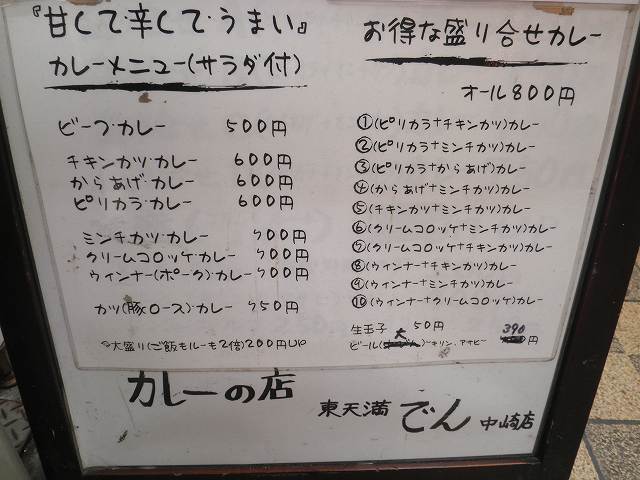 『甘しくて辛しくて・うまい』
カレーメニュー(サラダ付)
ビーフ・カレー 500円
チキンカツ・カレー 600円
からあげ・カレー 600円
ピリカラ・カレー 600円
ミンチカツ・カレー 700円
クリームコロッケ・カレー 700円
ウィンナー(ポーク)・カレー 700円
カツ(豚ロース)・カレー 750円
大盛り(ご飯もルーも2倍)200円UP
お得な盛り合せカレー
オール800円
①(ピリカラ+チキンカツ)カレー
②(ピリカラ+ミンチカツ)カレー
③(ピリカラ+からあげ)カレー
④(からあげ+ミンチカツ)カレー
⑤(チキンカツ+ミンチカツ)カレー
⑥(クリームコロッケ+ミンチカツ)カレー
⑦(クリームコロッケ+チキンカツ)カレー
⑧(ウィンナー+チキンカツ)カレー
⑨(ウィンナー+ミンチカツ)カレー
⑩(ウィンナー+クリームコロッケ)カレー
生玉子 50円
ビール(大)-キリン、アサヒ- 390円
カレーの店
東天満 でん 中崎店